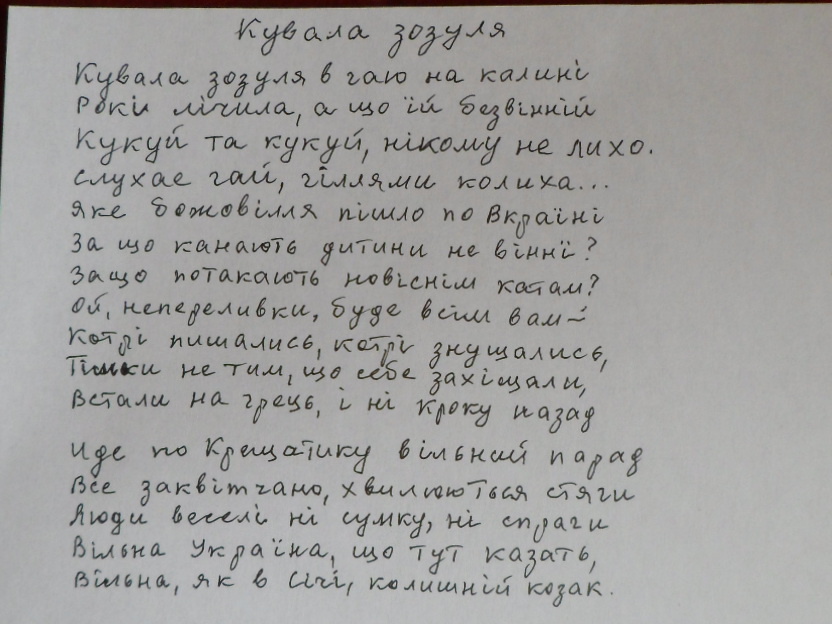 Кувала зозуля
Кувала зозуля в гаю на калині
Роки лічила, а що їй безвінній
Кукуй та кукуй, нікому не лихо.
Слухає гай, гіллями колиха...
Яке божовілля пішло по Вкраїні
За що канають дитини не вінні?
Защо потакають новіснім катам?
Ой, непереливки, буде всім вам –
Котрі пишались, котрі знущались,
Тільки не тим, що себе захіщали,
Встали на грець, і ні кроку назад
Иде по Крещатику вільний парад
Все заквітчано, хвилюються стяги
Люди веселі ні сумку, ні спраги
Вільна Україна, що тут казать,
Вільна, як в Січі, колишній козак.